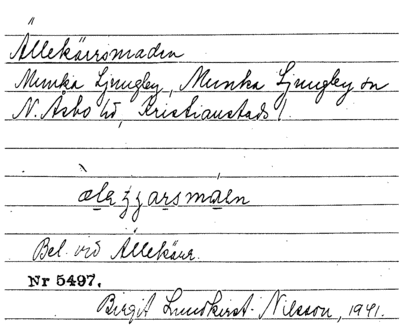 Ällekärrsmaden
Munka Ljungby, Munka Ljungby sn
N. Åsbo hd, Kristianstads l.
Bel. vid Ällekärr.
Nr 5497.
Birgit Lundkvist-Nilsson, 1941.